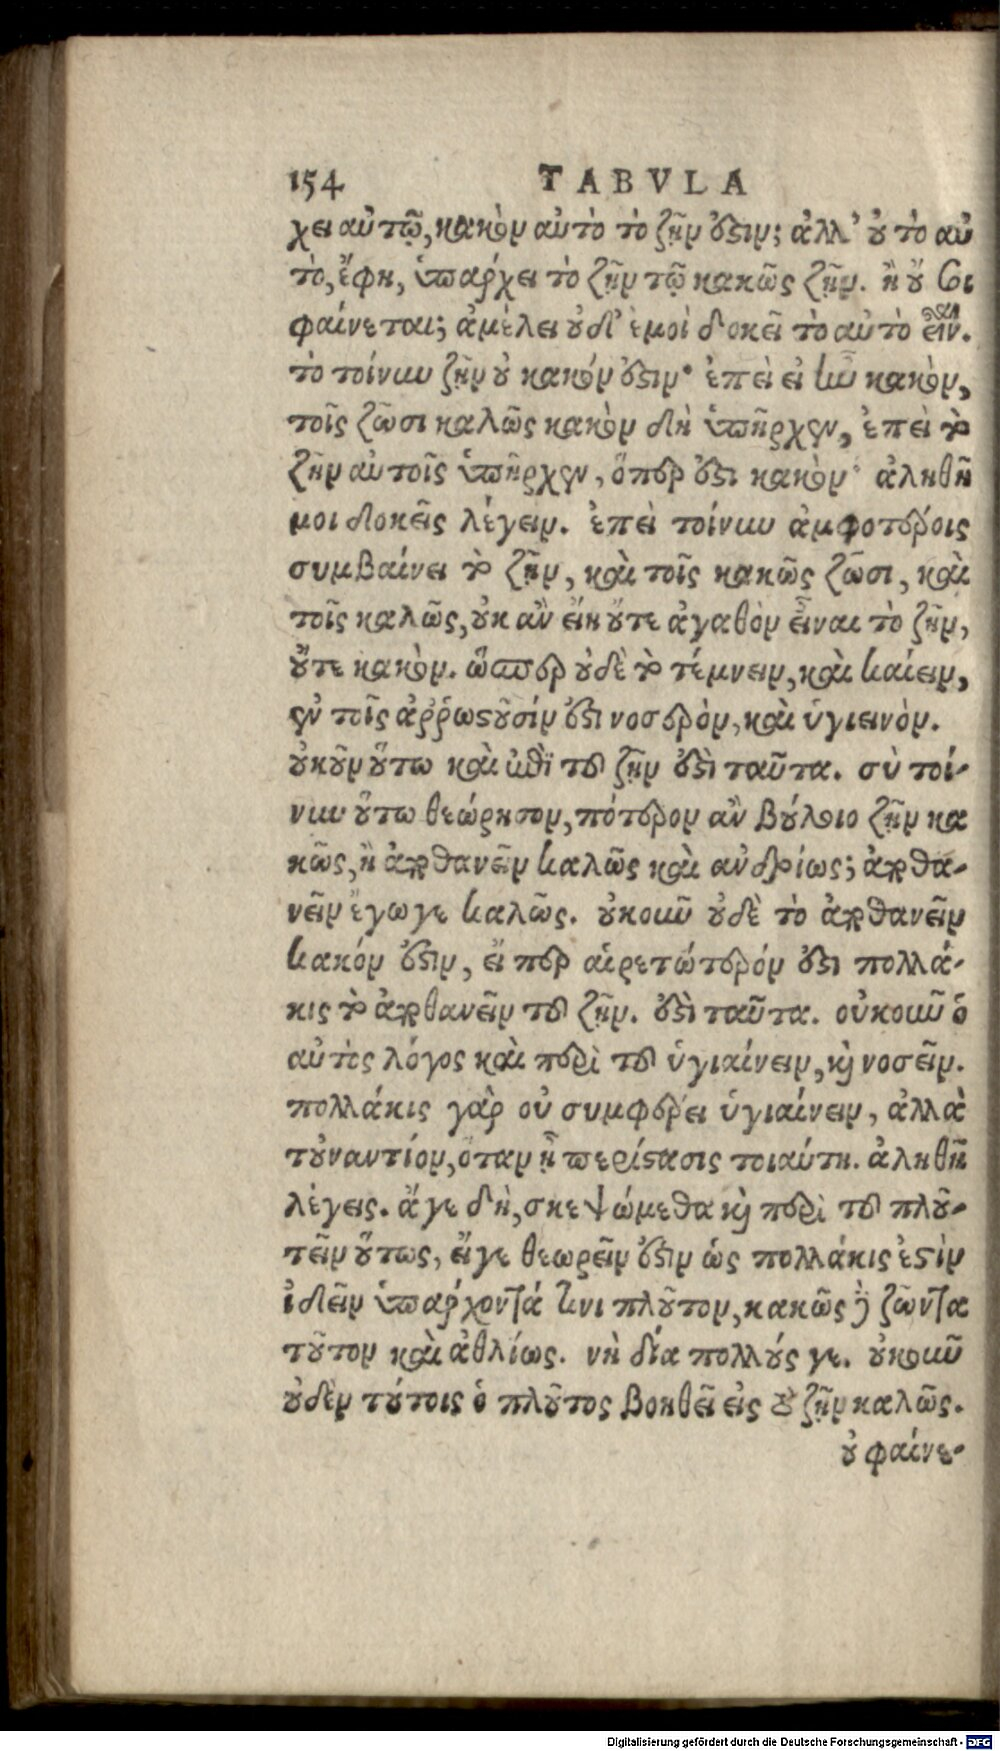 154 TABVLA
χει αὐτῷ, κακὸν αὐτὸ τὸ ζῇν ὅστιν; ἀλλ' οὐ τὸ αὐ
τὸ, ἔφη, ὑπάρχει τὸ ζῇν τῷ κακῶς ζῇν. ἢ οὔ σοι
φαίνεται; ἀμέλει οὐδ' ἐμοὶ δοκεῖ τὸ αὐτὸ εἶναι.
τὸ τοίνυν ζῇν οὐ κακόν ἐστιν· ἐπεὶ εἰ ἦν κακὸν,
τοῖς ζῶσι καλῶς κακὸν δὴ ὑπῆρχεν, ἐπεὶ τὸ
ζῇν αὐτοῖς ὑπῆρχεν, ὅπερ ἐστὶ κακὸν· ἀληθῆ
μοι δοκεῖς λέγειν. ἐπεὶ τοίνυν ἀμφοτέροις
συμβαίνει τὸ ζῇν, καὶ τοῖς κακῶς ζῶσι, καὶ
τοῖς καλῶς, οὐκ ἂν εἴη οὔτε ἀγαθὸν εἶναι τὸ ζῇν,
οὔτε κακὸν. ὥσπερ οὐδὲ τὸ τέμνειν, καὶ καίειν,
ἐν τοῖς ἀῤῥωστοῦσίν ἐστι νοσερὸν, καὶ ὑγιεινὸν.
οὐκοῦν οὕτω καὶ ἐπὶ τοῦ ζῇν ἐστὶ ταῦτα. σὺ τοί-
νυν οὕτω θεώρησον, πότερον ἂν βούλοιο ζῇν κα
κῶς, ἢ ἀποθανεῖν καλῶς καὶ ἀνδρείως; ἀποθα-
νεῖν ἔγωγε καλῶς. οὐκοῦν οὐδὲ τὸ ἀποθανεῖν
κακόν ἐστιν, εἴπερ αἱρετώτερόν ἐστι πολλά-
κις τὸ ἀποθανεῖν τοῦ ζῇν. ἐστὶ ταῦτα. οὐκοῦν ὁ
αὐτὸς λόγος καὶ περὶ τοῦ ὑγιαίνειν, καὶ νοσεῖν.
πολλάκις γὰρ οὐ συμφέρει ὑγιαίνειν, ἀλλὰ
τοὐναντίον, ὅταν ᾖ περίστασις τοιαύτη. ἀληθῆ
λέγεις. ἄγε δὴ, σκεψώμεθα καὶ περὶ τοῦ πλου-
τεῖν οὕτως, εἴγε θεωρεῖν ἐστιν ὡς πολλάκις ἐστὶν
ἰδεῖν ὑπάρχοντά τινι πλοῦτον, κακῶς δὲ ζῶντα
τοῦτον καὶ ἀθλίως. νὴ δία πολλούς γε. οὐκοῦν
οὐδὲν τούτοις ὁ πλοῦτος βοηθεῖ εἰς τὸ ζῇν καλῶς.
οὐ φαίνε-
Digitalisierung gefördert durch die Deutsche Forschungsgemeinschaft - DFG